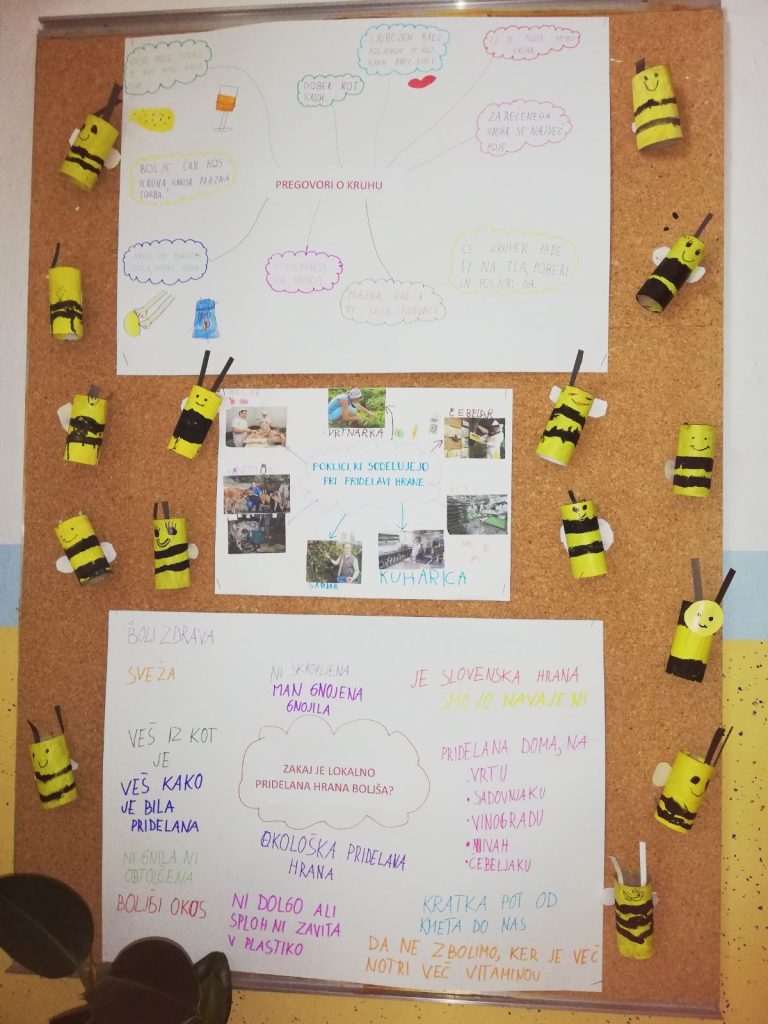 LJUBEZEN BREZ
POLJUBOV JE KOT
KRUH BREZ SOLI.
DOBER KOT
KRUH.
ZAREČENEGA
KRUHA SE NAJVEČ
POJE.
BOLJE ČRN KOS
KRUHA, KAKOR PRAZNA
TORBA.
PREGOVORI O KRUHU
ČE KRUHEK PADE
TI NA TLA, POBERI
IN POLJUBI GA.
S TREBUHOM
ZA KRUHOM.
PRAZNA VREČA
NE STOJI POKONCI.
VRTNARKA
ČEBELAR
POKLICI, KI SODELUJEJO
PRI PRIDELAVI HRANE
SADJAR
KUHARICA
BOLJ ZDRAVA
SVEŽA
NI ŠKROPLJENA
MAN GNOJENA
GNOJILA
JE SLOVENSKA HRANA
SMO JO NAVAJENI
VEŠ IZ KOT
JE
VEŠ KAKO
JE BILA
PRIDELANA
ZAKAJ JE LOKALNO
PRIDELANA HRANA BOLJŠA?
PRIDELANA DOMA, NA
VRTU
• SADOVNJAKU
• VINOGRADU
• NJIVAH
• ČEBELJAKU
NI GNILA NI
OBTOLČENA
OKOLOŠKA PRIDELANA
HRANA
BOLJŠI OKOS
NI DOLGO ALI
SPLOH NI ZAVITA
V PLASTIKO
KRATKA POT OD
KMETA DO NAS
DA NE ZBOLIMO, KER JE VEČ
NOTRI VEČ VITAMINOU